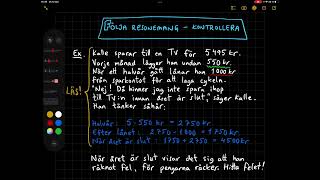 FÖLJA RESONEMANG - KONTROLLERA
Ex
Kalle sparar till en TV för 5 495 kr.
Varje månad lägger han undan 550 kr.
När ett halvår gått lånar han 1000 kr
från sparkontot för att laga cykeln.
LÄS!
"Nej! Då hinner jag inte spara ihop
till TV:n innan året är slut, säger Kalle.
Han tänker såhär:
Halvår: 5 · 550 kr = 2750 kr
Efter lånet: 2750 - 1000 = 1750 kr
När året är slut: 1750 + 2750 = 4500 kr
När året är slut visar det sig att han
räknat fel, för pengarna räcker. Hitta felet!